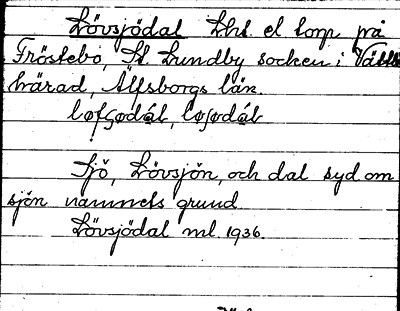 Lövsjödal Lht. el torp på
Fröstebo, St. Lundby socken i Vättle
härad, Älfsborgs län.
Sjö, Lövsjön, och dal syd om
sjön namnets grund
Lövsjödal ml. 1936.